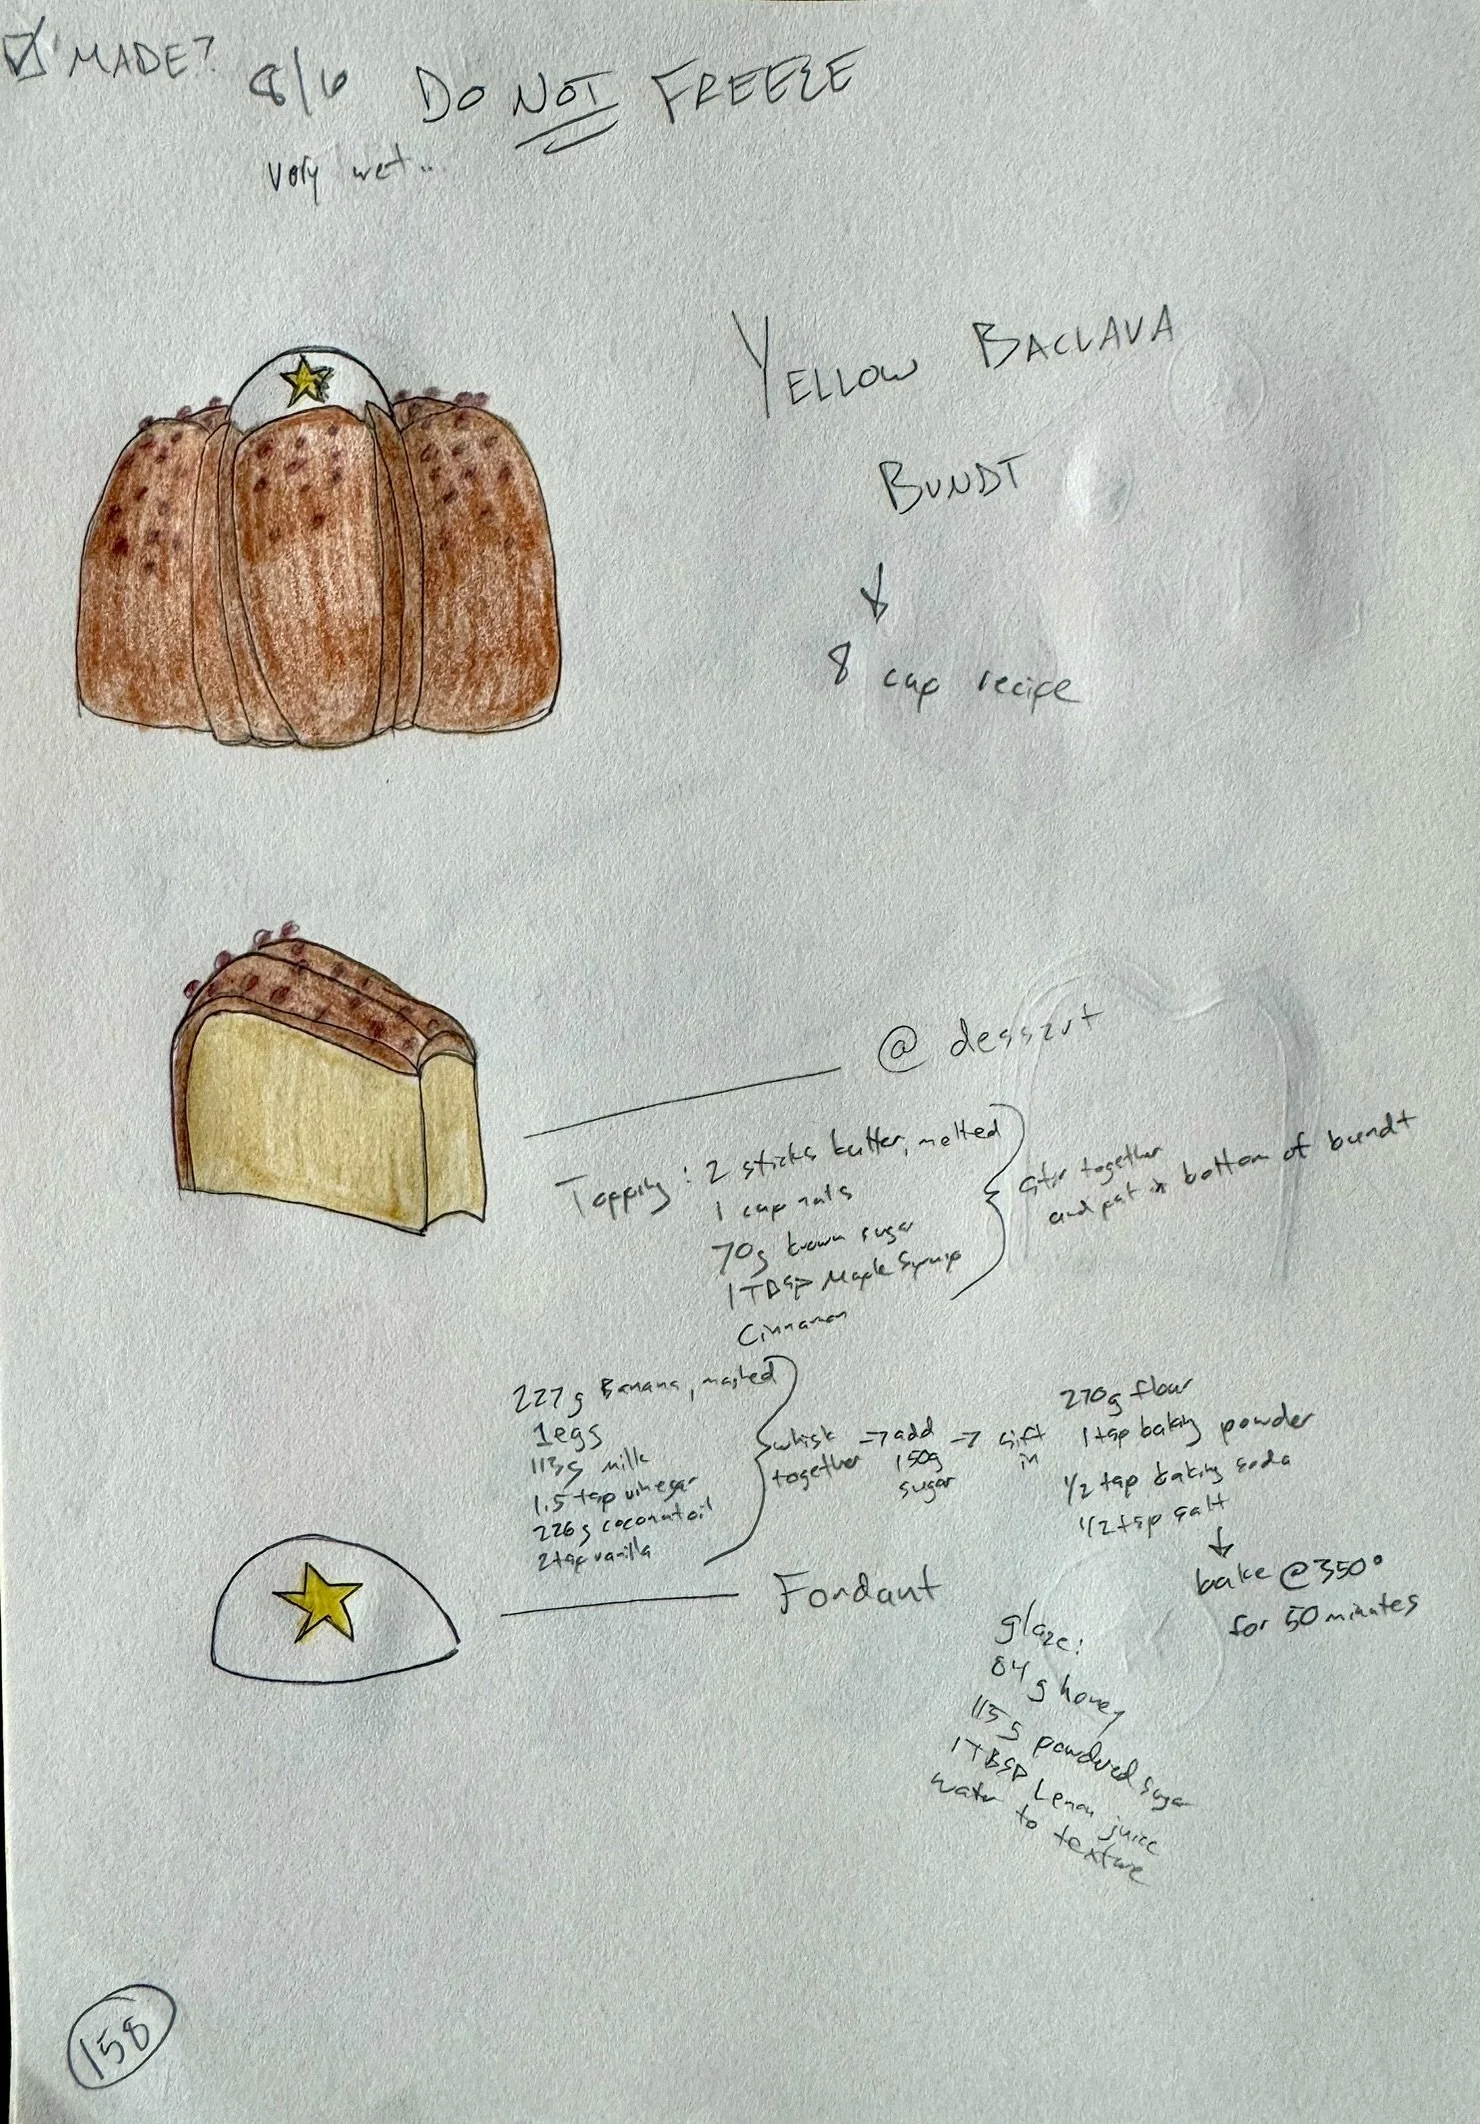 MADE?
8/6 DO NOT FREEZE
very wet..
YELLOW BACLAVA
BUNDT
8 cup recipe
@ dessert
Topping: 2 sticks butter, melted
1 cup nuts
70g brown sugar
1 TBSP Maple Syrup
Cinnamon
stir together
and put in bottom of bundt
227g Banana, mashed
1 egs
113g milk
1.5 tsp vinegar
226g coconut oil
2 tsp vanilla
whisk
together
→ add
150g
sugar
→ sift
in
270g flour
1 tsp baking powder
1/2 tsp baking soda
1/2 tsp salt
bake @ 350°
for 50 minutes
Fondant
glaze:
84g honey
115g powdered sugar
1 TBSP Lemon juice
water to texture
158